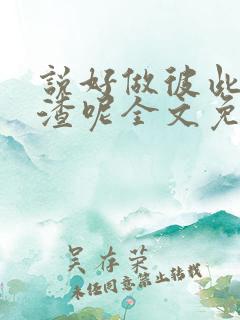 說好做彼此
渣呢全文免
吴存荣
未经同意禁止转载